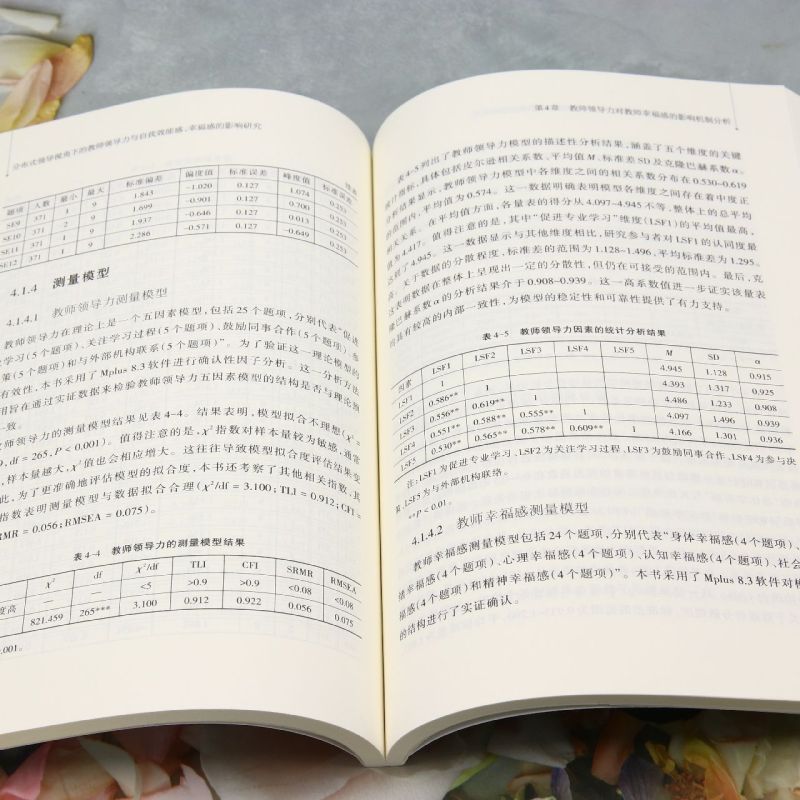 分布式领导视角下的教师领导力与自我效能感、幸福感的影响研究
续表
题项 人数 最小 最大 标准偏差 偏度值 标准误差 峰度值 标准误差
SE9 371 1 9 1.843 -1.020 0.127 1.074 0.253
SE10 371 2 9 1.699 -0.901 0.127 0.700 0.253
SE11 371 1 9 1.937 -0.646 0.127 0.013 0.253
SE12 371 1 9 2.286 -0.571 0.127 -0.649 0.253
4.1.4 测量模型
4.1.4.1 教师领导力测量模型
教师领导力在理论上是一个五因素模型,包括25个题项,分别代表“促进
学习(5个题项)、关注学习过程(5个题项)、鼓励同事合作(5个题项)、参
策(5个题项)和与外部机构联系(5个题项)”。为了验证这一理论模型的
有效性,本书采用了Mplus 8.3软件进行确认性因子分析。这一分析方法
旨在通过实证数据来检验教师领导力五因素模型的结构是否与理论预
一致。
教师领导力的测量模型结果见表4-4。结果表明,模型拟合不理想(χ² =
9, df = 265, P < 0.001)。值得注意的是,χ²指数对样本量较为敏感,通常
,样本量越大,χ²值也会相应增大。这往往导致模型拟合度评估结果变
此,为了更准确地评估模型的拟合度,本书还考察了其他相关指数,其
指数表明测量模型与数据拟合合理(χ²/df = 3.100; TLI = 0.912; CFI =
RMR = 0.056; RMSEA = 0.075)。
表4-4 教师领导力的测量模型结果
χ² df χ²/df TLI CFI SRMR RMSEA
— — <5 >0.9 >0.9 <0.08 <0.08
度高 821.459 265*** 3.100 0.912 0.922 0.056 0.075
0.001。
第4章 教师领导力对教师幸福感的影响机制分析
表4-5列出了教师领导力模型的描述性分析结果,涵盖了五个维度的关键
统计指标,具体包括皮尔逊相关系数、平均值M、标准差SD及克隆巴赫系数α。
分析结果显示,教师领导力模型中各维度之间的相关系数分布在0.530~0.619
的范围内,平均值为0.574。这一数据明确表明模型各维度之间存在着中度正
相关关系。在平均值方面,各量表的得分从4.097~4.945不等,整体上的总平均
值为4.417。值得注意的是,其中“促进专业学习”维度(LSF1)的平均值最高,
达到了4.945。这一数据显示与其他维度相比,研究参与者对LSF1的认同度最
高。关于数据的分散程度,标准差的范围为1.128~1.496,平均标准差为1.295。
这表明数据在整体上呈现出一定的分散性,但仍在可接受的范围内。最后,克
隆巴赫系数α的分析结果介于0.908~0.939。这一高系数值进一步证实该量表
均具有较高的内部一致性,为模型的稳定性和可靠性提供了有力支持。
表4-5 教师领导力因素的统计分析结果
因素 LSF1 LSF2 LSF3 LSF4 LSF5 M SD α
LSF1 1 4.945 1.128 0.915
LSF2 0.586** 1 4.393 1.317 0.925
LSF3 0.556** 0.619** 1 4.486 1.233 0.908
LSF4 0.551** 0.588** 0.555** 1 4.097 1.496 0.939
LSF5 0.530** 0.565** 0.578** 0.609** 1 4.166 1.301 0.936
注:LSF1为促进专业学习、LSF2为关注学习过程、LSF3为鼓励同事合作、LSF4为参与决
策、LSF5为与外部机构联络。
**p < 0.01。
4.1.4.2 教师幸福感测量模型
教师幸福感测量模型包括24个题项,分别代表“身体幸福感(4个题项)、
绪幸福感(4个题项)、心理幸福感(4个题项)、认知幸福感(4个题项)、社会
福感(4个题项)和精神幸福感(4个题项)”。本书采用了Mplus 8.3软件对模
的结构进行了实证确认。